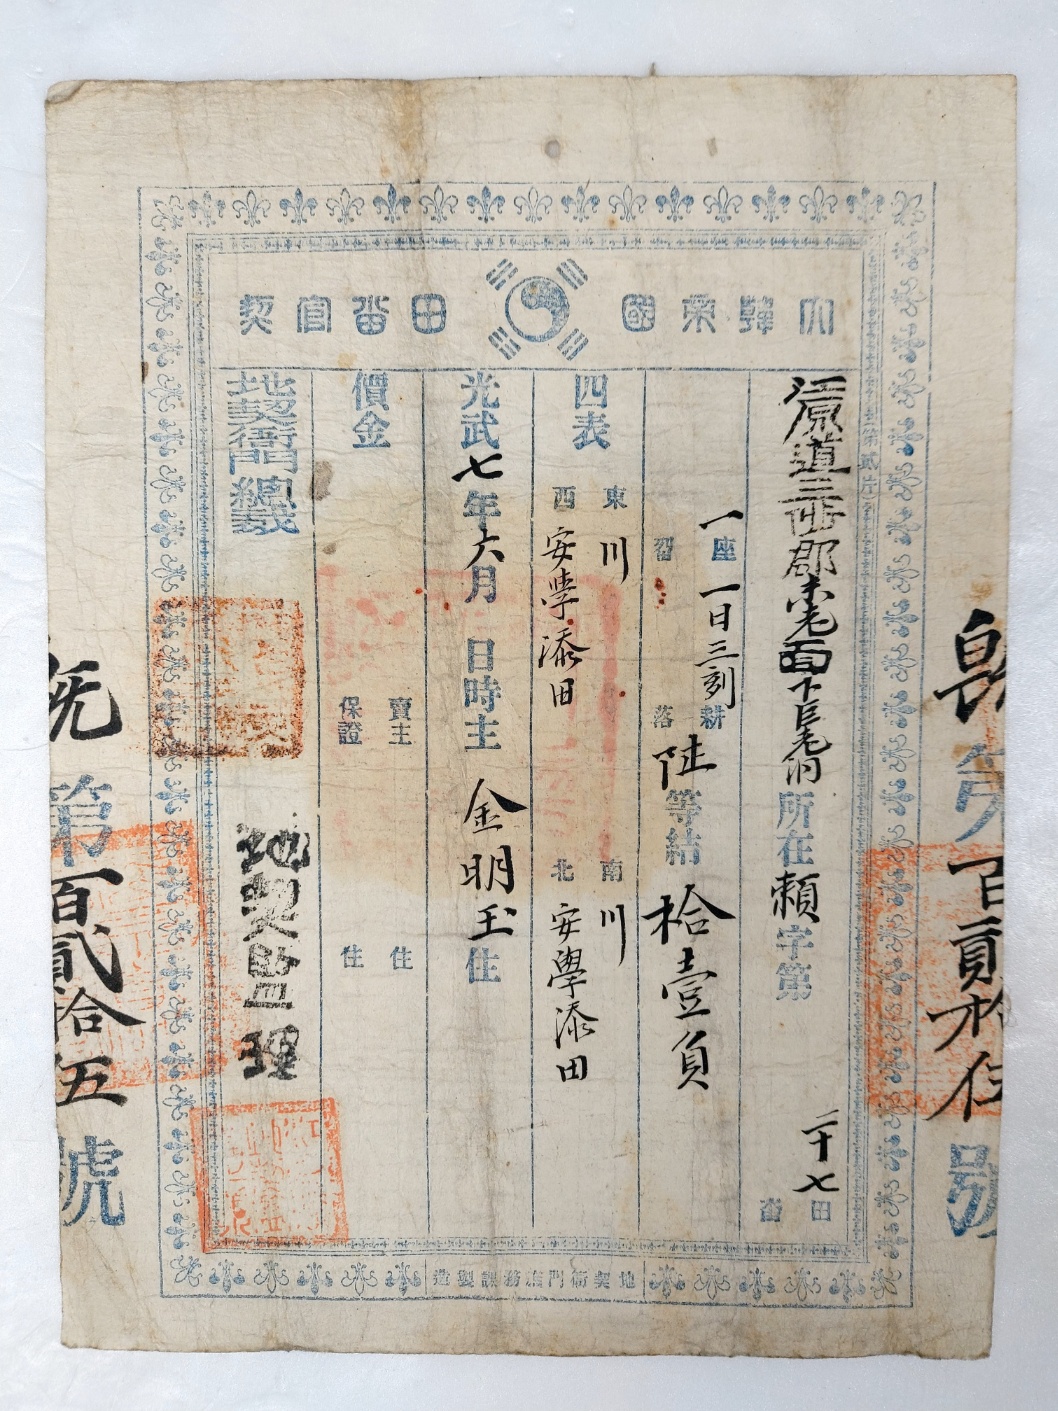 大韓帝國 田畓官契
江原道三陟郡未老面下巨老洞所在賴字第二十七 田 畓
一座 一日三刻耕
畓 落 陸等結拾壹負
四表 東 川 南 川
西 安學添田 北 安學添田
光武七年六月 日時主 金明玉住
價金 賣主 住
保證 住
地契衙門總裁
地契監理
地契衙門庶務課製造
第百貳拾五號
第百貳拾伍號